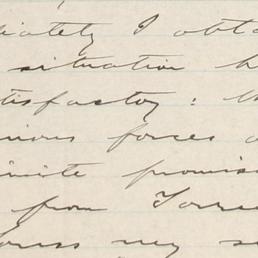 iately I obta
situation h
tisfactory: th
nious forces o
inite promis
from Torre
my s